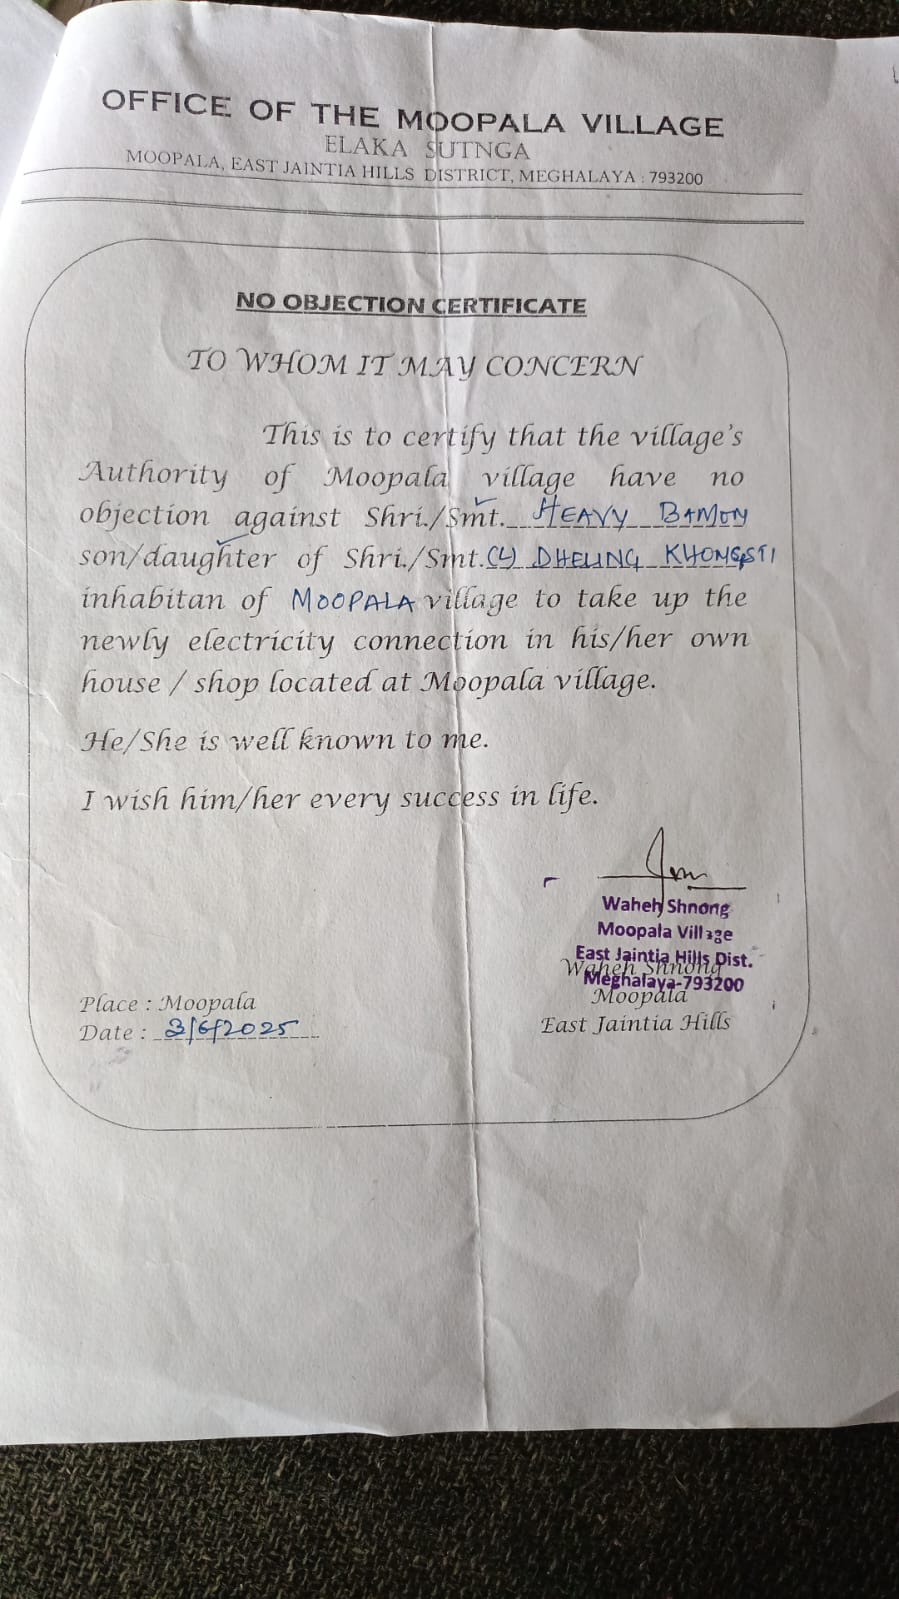 OFFICE OF THE MOOPALA VILLAGE
ELAKA SUTNGA
MOOPALA, EAST JAINTIA HILLS DISTRICT, MEGHALAYA : 793200
NO OBJECTION CERTIFICATE
TO WHOM IT MAY CONCERN
This is to certify that the village's
Authority of Moopala village have no
objection against Shri./Smt. HEAVY BAMON
son/daughter of Shri./Smt. (L) DHELING KHONGSTI
inhabitan of MOOPALA village to take up the
newly electricity connection in his/her own
house / shop located at Moopala village.
He/She is well known to me.
I wish him/her every success in life.
Waheh Shnong
Moopala Village
East Jaintia Hills Dist.
Meghalaya-793200
Waheh Shnong
Moopala
East Jaintia Hills
Place : Moopala
Date : 3/6/2025